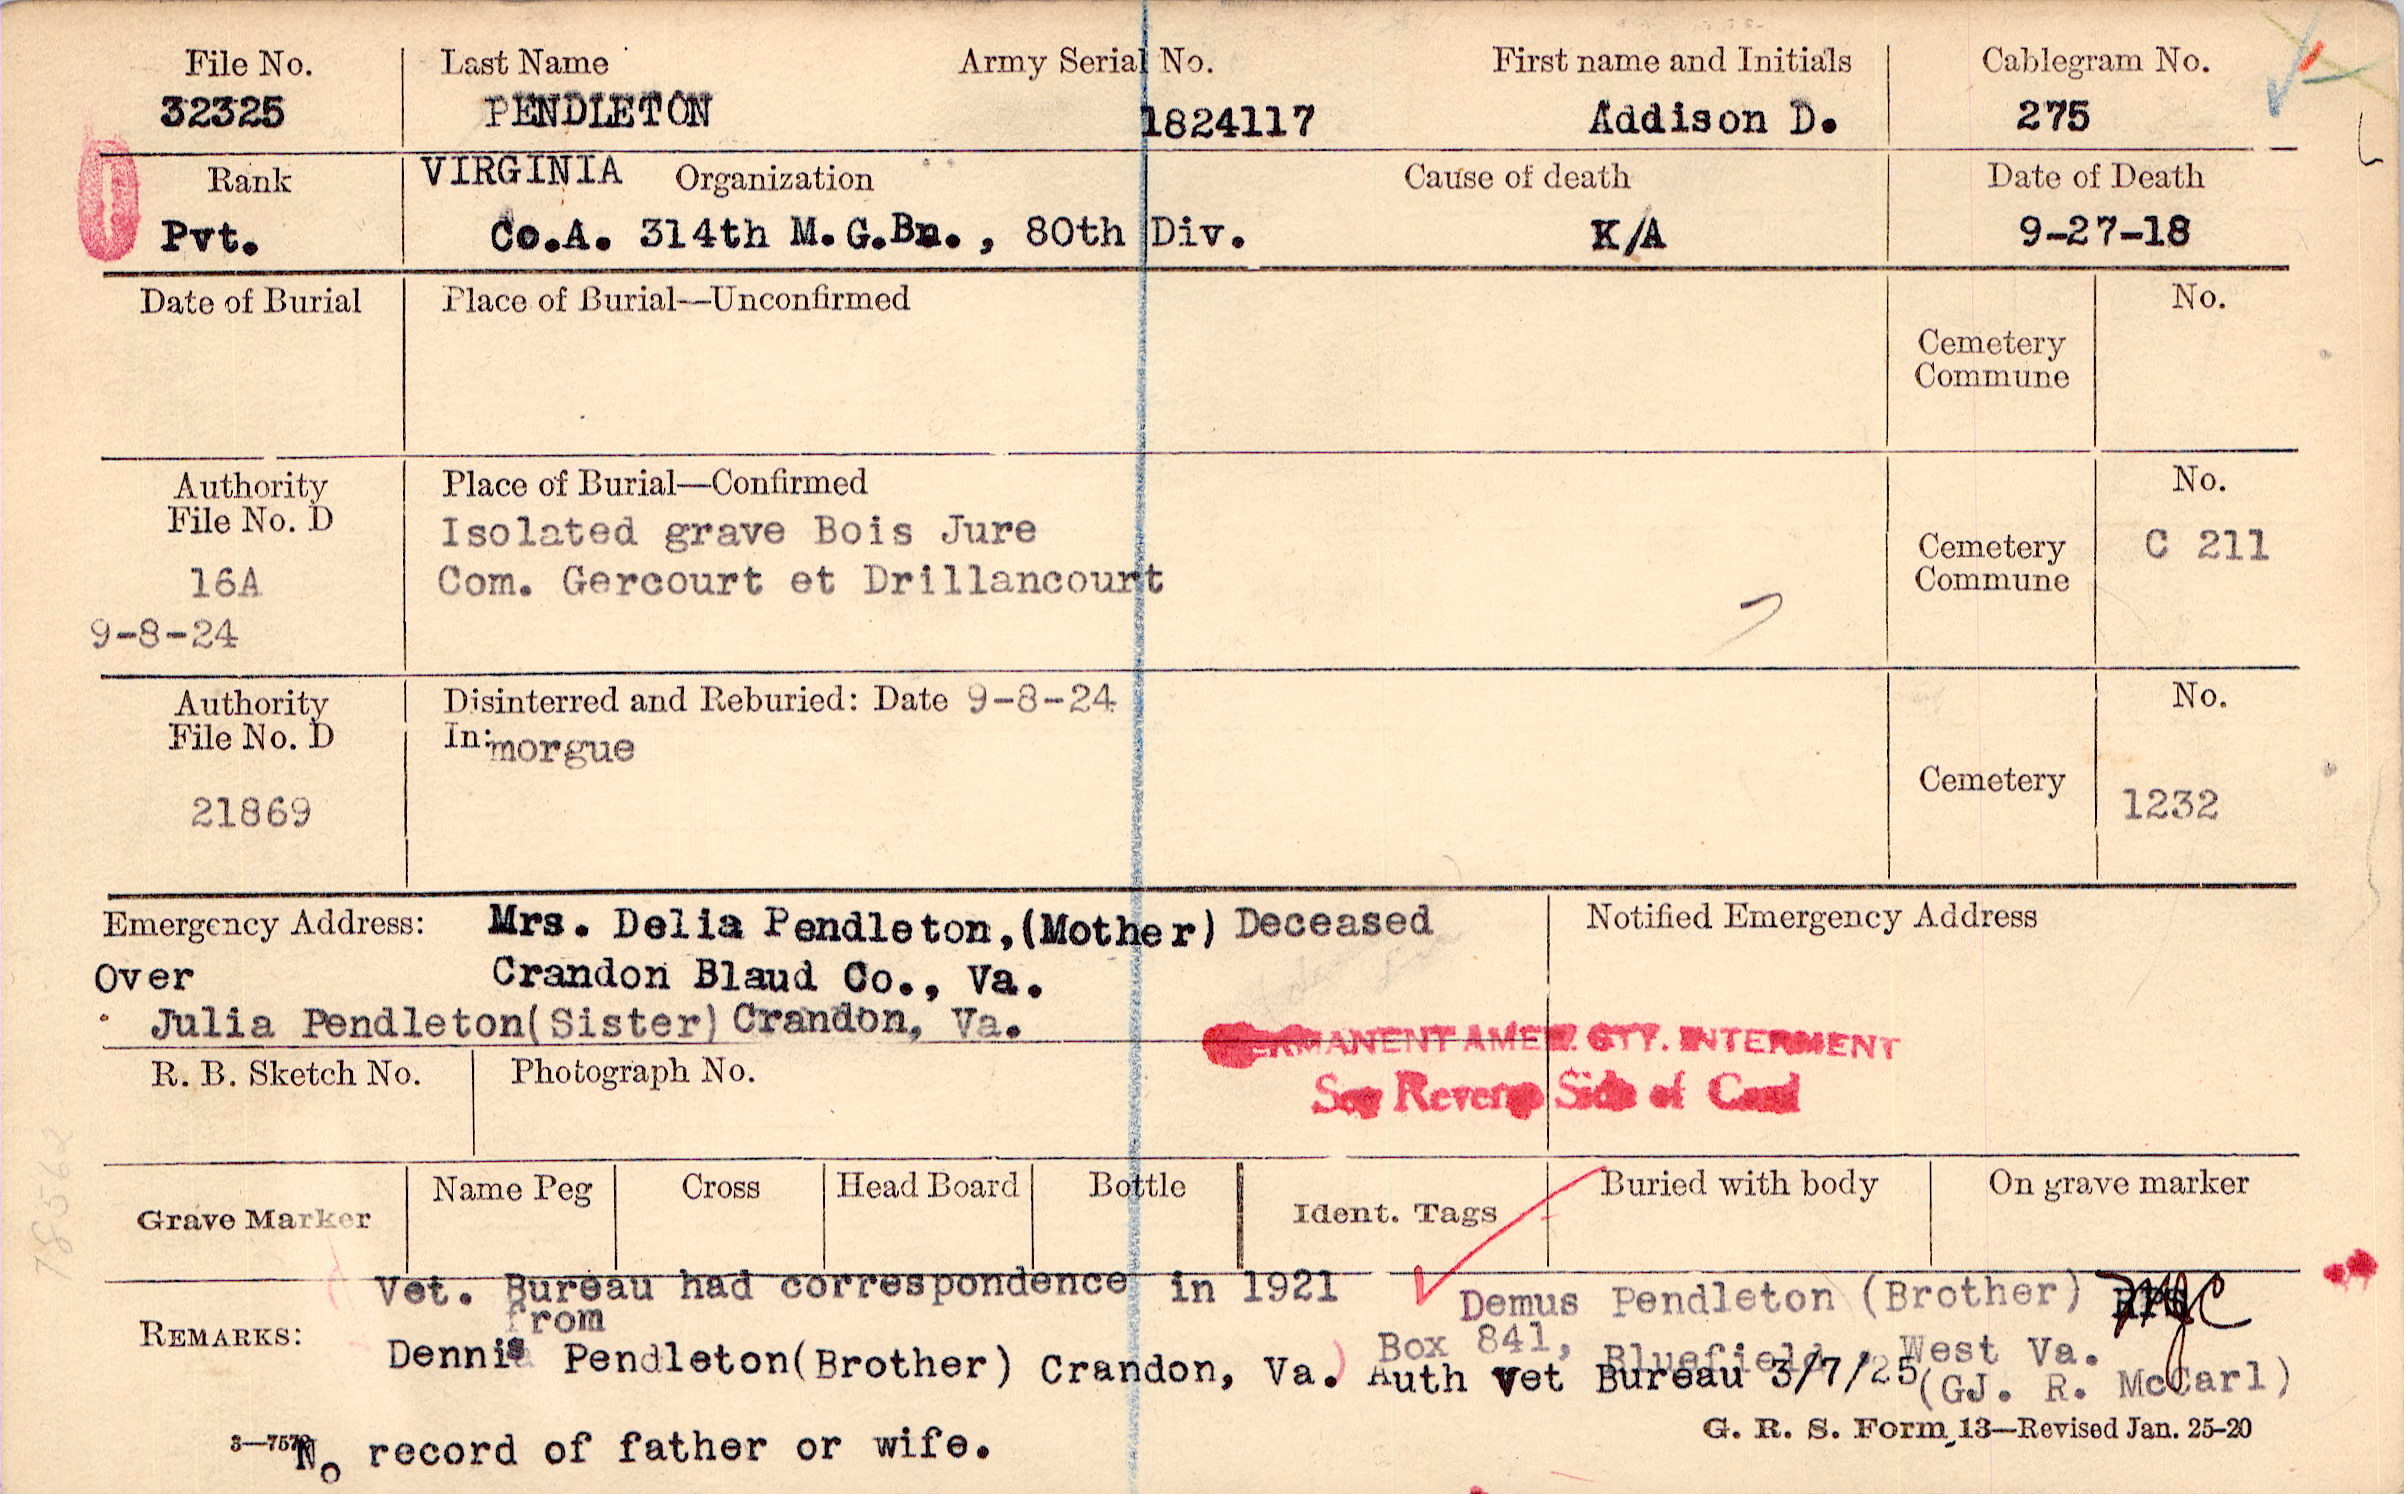 File No. Last Name Army Serial No. First name and Initials Cablegram No.
32325 PENDLETON 1824117 Addison D. 275
Rank VIRGINIA Organization Cause of death Date of Death
Pvt. Co.A. 314th M.G.Bn., 80th Div. K/A 9-27-18
Date of Burial Place of Burial—Unconfirmed No.
Cemetery
Commune
Authority Place of Burial—Confirmed No.
File No. D Isolated grave Bois Jure Cemetery C 211
16A Com. Gercourt et Drillancourt Commune
9-8-24
Authority Disinterred and Reburied: Date 9-8-24 No.
File No. D In: morgue
Cemetery
21869 1232
Emergency Address: Mrs. Delia Pendleton,(Mother) Deceased Notified Emergency Address
Over Crandon Blaud Co., Va.
Julia Pendleton(Sister) Crandon, Va.
PERMANENT AMER. CTY. INTERMENT
R. B. Sketch No. Photograph No.
See Reverse Side of Card
Name Peg Cross Head Board Bottle Buried with body On grave marker
Grave Marker Ident. Tags
78562
Vet. Bureau had correspondence in 1921
from
Demus Pendleton (Brother)
REMARKS:
Dennis Pendleton(Brother) Crandon, Va.
Box 841, Bluefield, West Va.
Auth Vet Bureau 3/7/25
(GJ. R. McCarl)
G. R. S. Form 13—Revised Jan. 25-20
3—757
No record of father or wife.